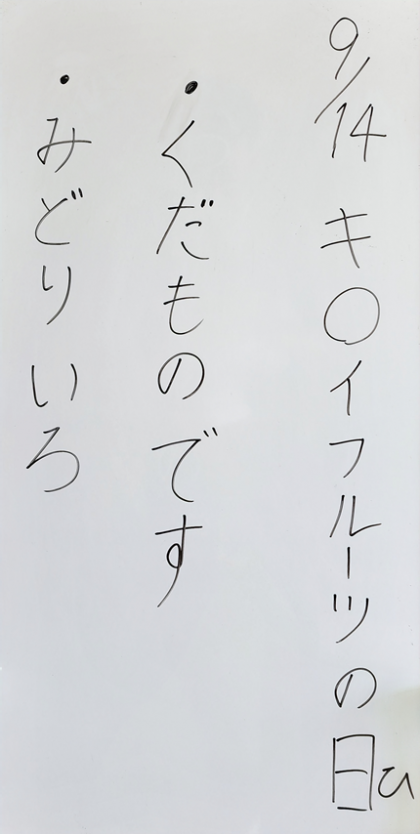 9/14 キ〇イフルーツの日ひ
・くだものです
・みどりいろ